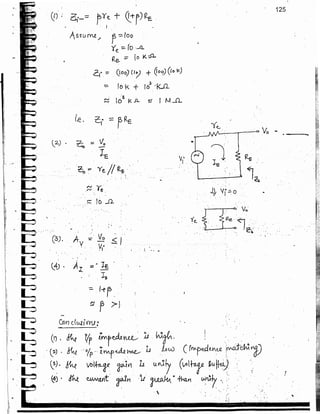 125
(1) · Zi = βre + (1+β)RE
Assume, β = 100
re = 10 Ω
RE = 10 KΩ
Zi = (100)(10) + (100)(10 K)
= 10 K + 10³ KΩ
≈ 10³ KΩ ≈ 1 MΩ
i.e. Zi ≈ βRE
(2) · Zo = Vo / IE
Zo = re // RE
≈ re
= 10 Ω
re
Vo
Vi
IE
RE
Zo
⇓ Vi = 0
Vo
re
RE
Zo
(3) · AV = Vo / Vi ≤ 1
(4) · AI = IE / IB
= 1+β
≈ β > 1
Conclusions:
(1) · The i/p impedance is high.
(2) · The o/p impedance is low (impedance matching)
(3) · The voltage gain is unity (voltage buffer)
(4) · The current gain is greater than unity.